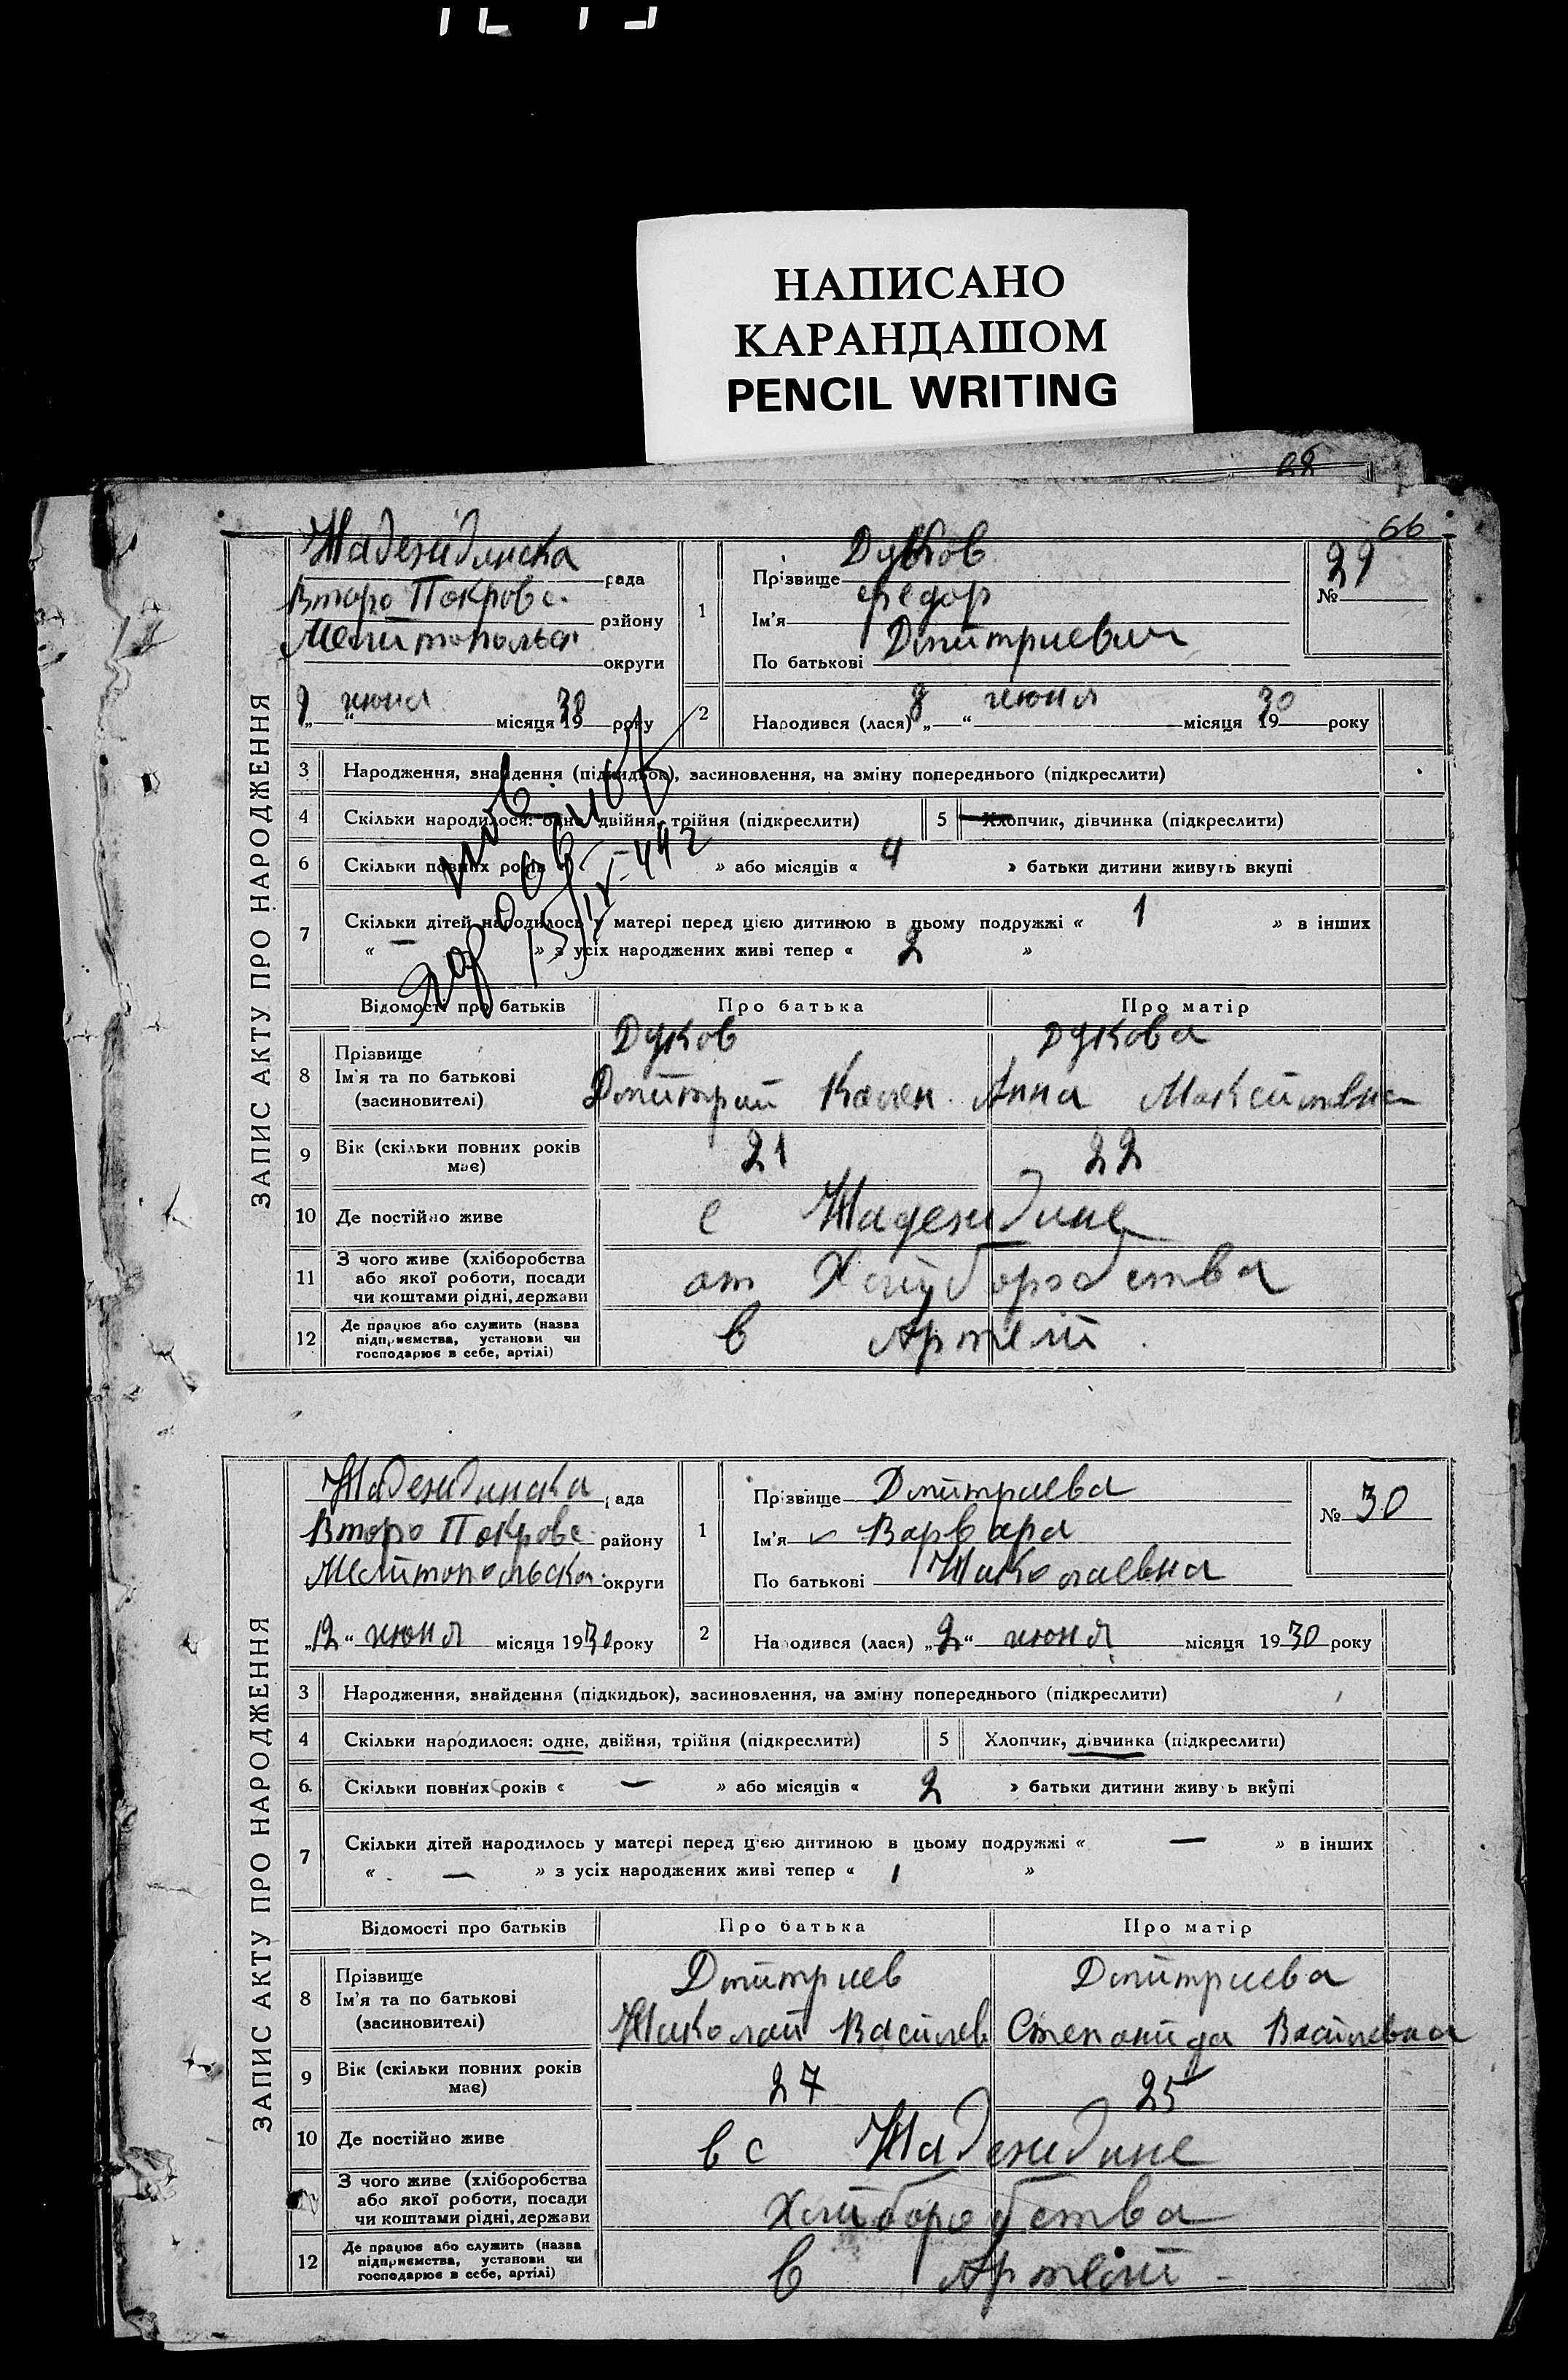 НАПИСАНО
КАРАНДАШОМ
PENCIL WRITING
68
66
ЗАПИС АКТУ ПРО НАРОДЖЕННЯ
Надеждинска рада
Второ Покровс. району
Мелитопольск округи
9 июня місяця 1930 року
1
Прізвище Дуков
Ім'я Федор
По батькові Дмитриевич
№ 29
2 Народився (лася) „8“ июня місяця 1930 року
3 Народження, знайдення (підкидьок), засиновлення, на зміну попереднього (підкреслити)
4 Скільки народилося: одне, двійня, трійня (підкреслити) 5 Хлопчик, дівчинка (підкреслити)
6 Скільки повних років « » або місяців « 4 » батьки дитини живуть вкупі
7 Скільки дітей народилось у матері перед цією дитиною в цьому подружжі « 1 » в інших
« — » з усіх народжених живі тепер « 2 »
Відомості про батьків Про батька Про матір
8 Прізвище Дуков Дукова
Ім'я та по батькові Дмитрий Анна Максимовна
(засиновителі)
9 Вік (скільки повних років має) 21 22
10 Де постійно живе с Надеждине
11 З чого живе (хліборобства або якої роботи, посади чи коштами рідні, держави от Хлиборобства
12 Де працює або служить (назва підприємства, установи чи господарює в себе, артілі) в Артели
ЗАПИС АКТУ ПРО НАРОДЖЕННЯ
Надеждинска рада
Второ Покровс. району
Мелитопольска округи
„12“ июня місяця 1930 року
1
Прізвище Дмитриева
Ім'я Варвара
По батькові Николаевна
№ 30
2 Народився (лася) „2“ июня місяця 1930 року
3 Народження, знайдення (підкидьок), засиновлення, на зміну попереднього (підкреслити)
4 Скільки народилося: одне, двійня, трійня (підкреслити) 5 Хлопчик, дівчинка (підкреслити)
6. Скільки повних років « — » або місяців « 2 » батьки дитини живуть вкупі
7 Скільки дітей народилось у матері перед цією дитиною в цьому подружжі « — » в інших
« — » з усіх народжених живі тепер « 1 »
Відомості про батьків Про батька Про матір
8 Прізвище Дмитриев Дмитриева
Ім'я та по батькові Николай Василев Степанида Василевна
(засиновителі)
9 Вік (скільки повних років має) 27 25
10 Де постійно живе в с Надеждине
З чого живе (хліборобства або якої роботи, посади чи коштами рідні, держави Хлиборобства
12 Де працює або служить (назва підприємства, установи чи господарює в себе, артілі) в Артели